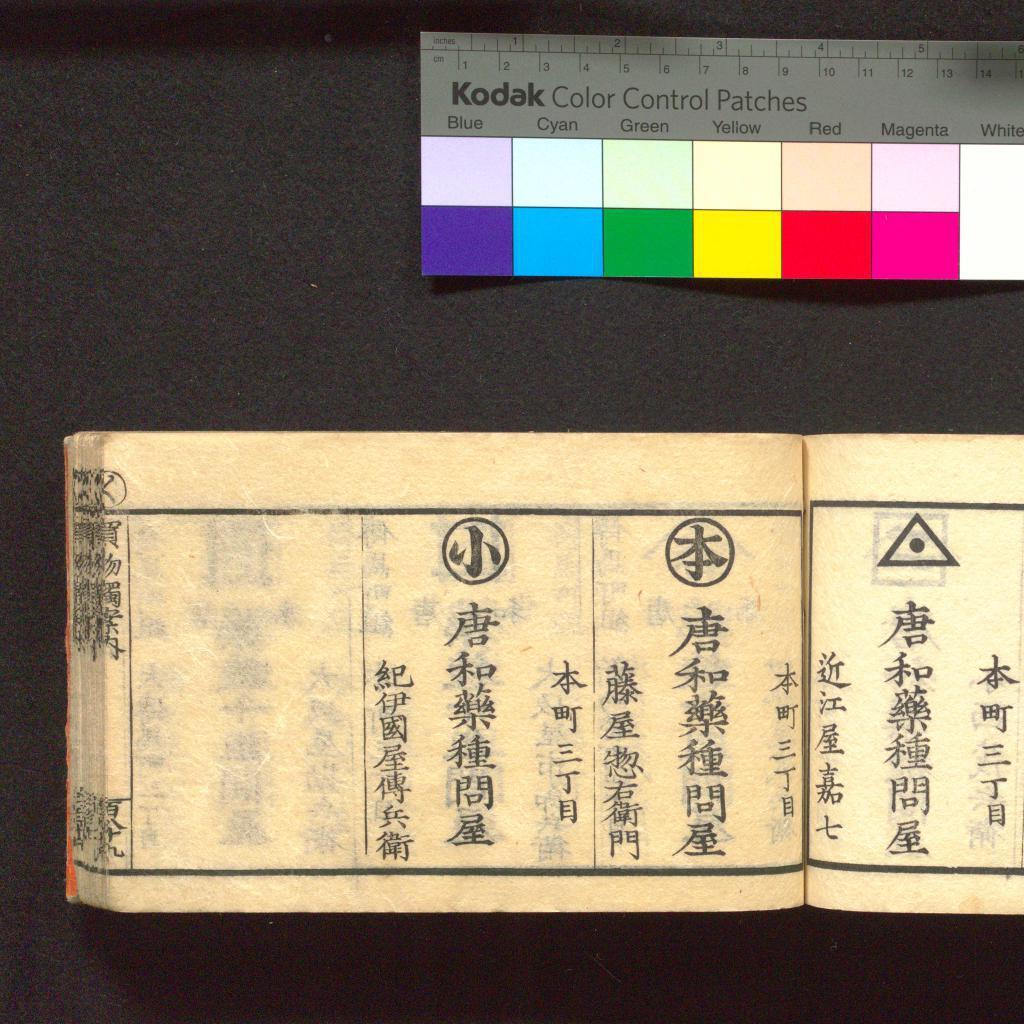 inches 1 2 3 4 5 6
cm 1 2 3 4 5 6 7 8 9 10 11 12 13 14
Kodak Color Control Patches
Blue Cyan Green Yellow Red Magenta White
本町三丁目
唐和藥種問屋
近江屋嘉七
本町三丁目
本
唐和藥種問屋
藤屋惣右衛門
本町三丁目
小
唐和藥種問屋
紀伊國屋傳兵衛
く
買物獨案内